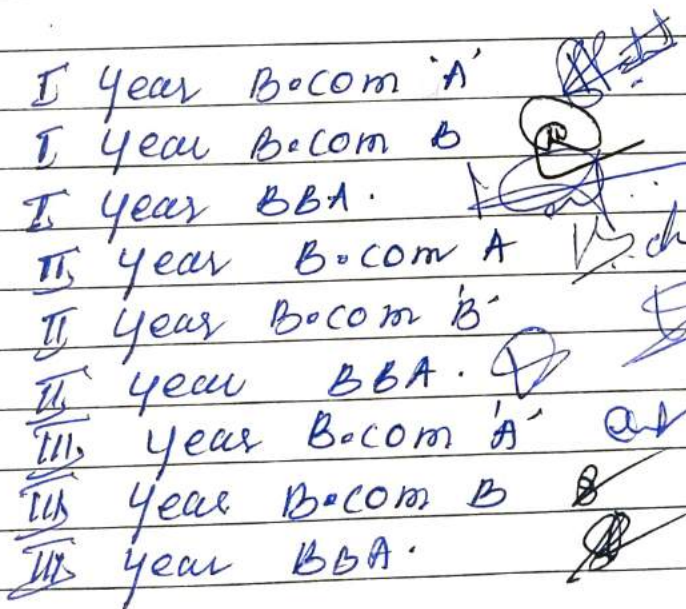 I year B.com 'A'
I year B.com B
I year BBA.
II year B.com A
II year B.com 'B'
II year BBA.
III year B.com 'A'
III year B.com B
III year BBA.